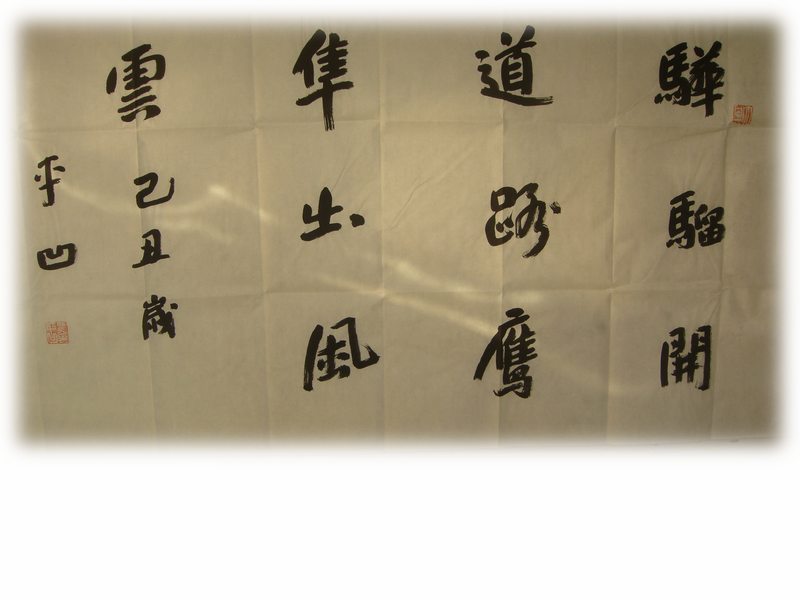 驊騮開
道路鷹
隼出風
雲
己丑歲
平凹